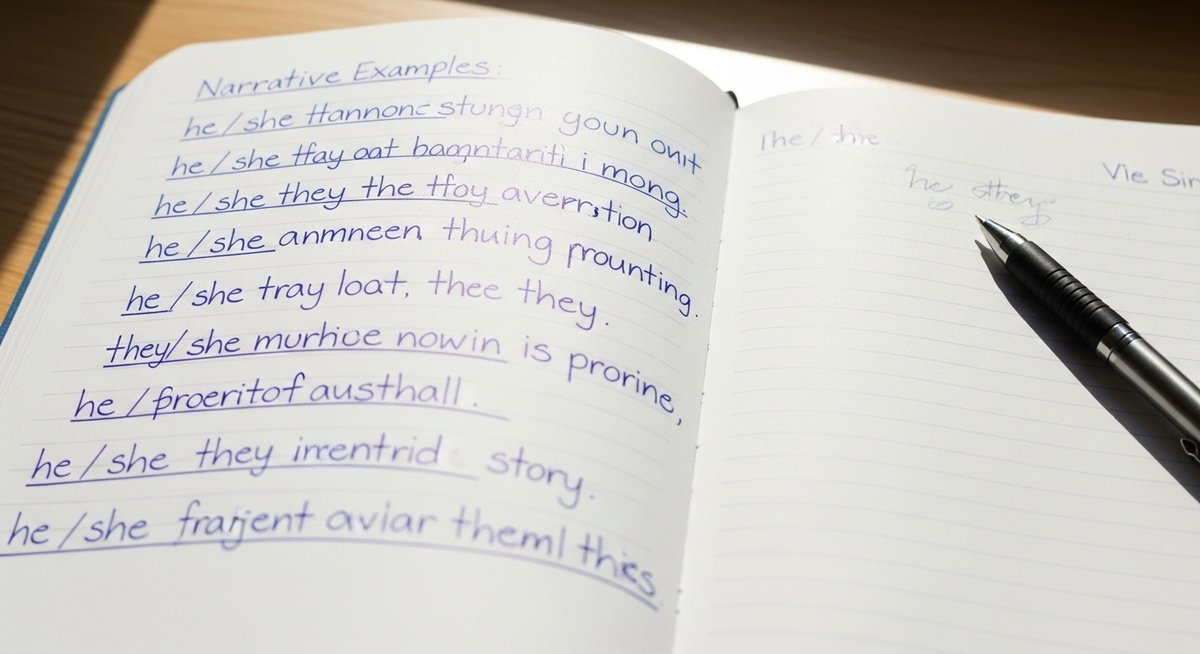 Narrative Examples:
he/she ttannonc stungn youn onit
he/she tfay oat bagntariti i mong.
he/she they the tfoy averrstion
he/she anmneen thuing prounting.
he/she tray loat, thee they.
they/she murhice nowin is prorine,
he/proeritof austhall.
he/she they imentrid story.
he/she frarjent aviar theml thies
The/
he they
Vle Sin